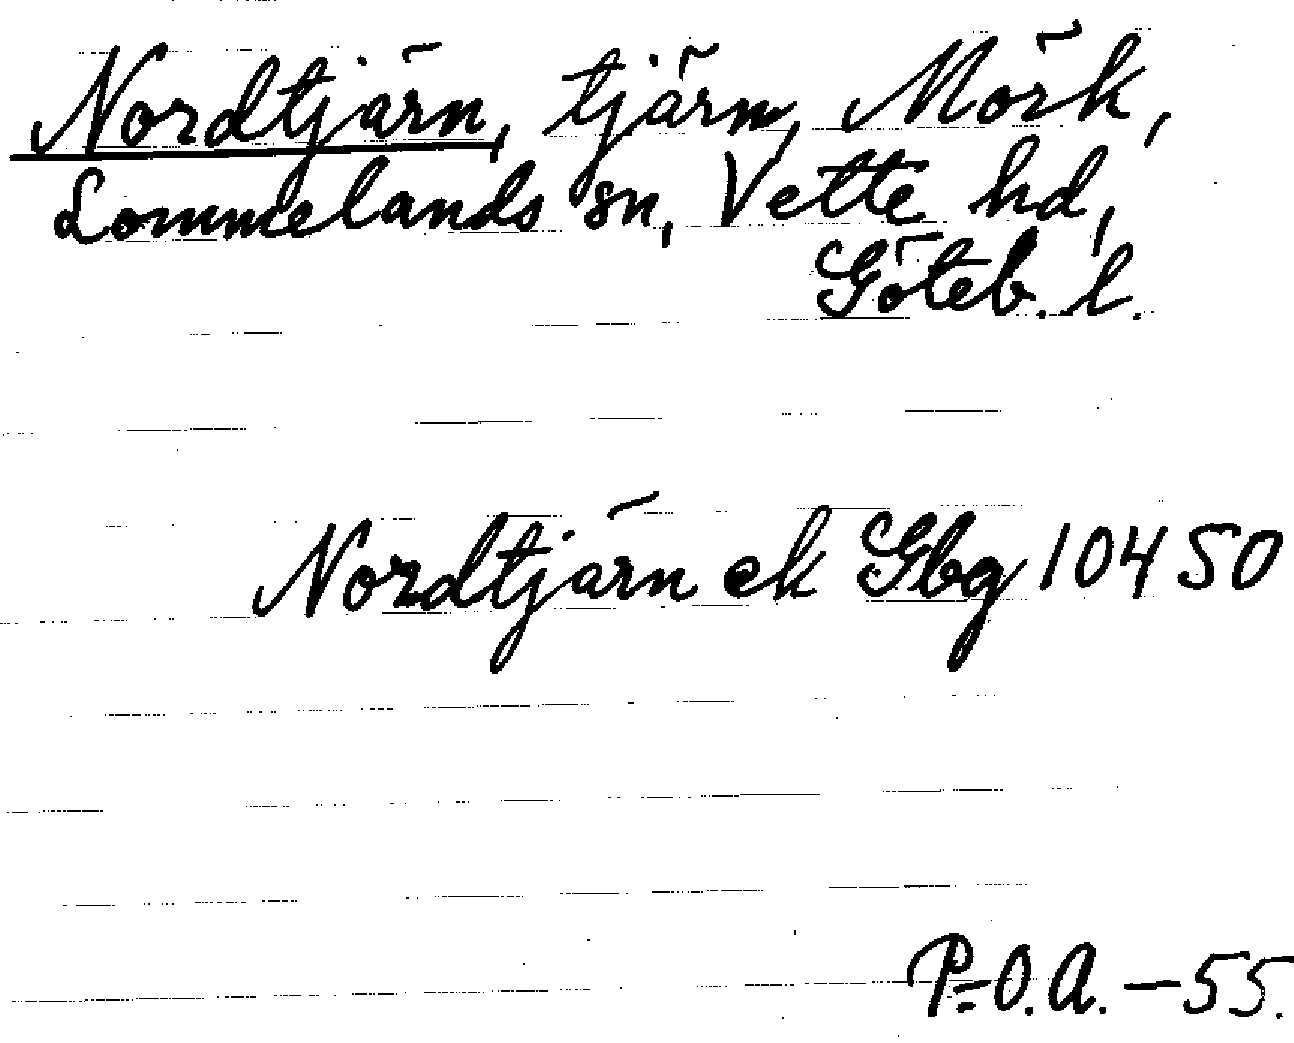 Nordtjärn, tjärn, Mörk,
Lommelands sn, Vette hd,
Göteb. l.
Nordtjärn ek Gbg 10450
P-O.A. -55.